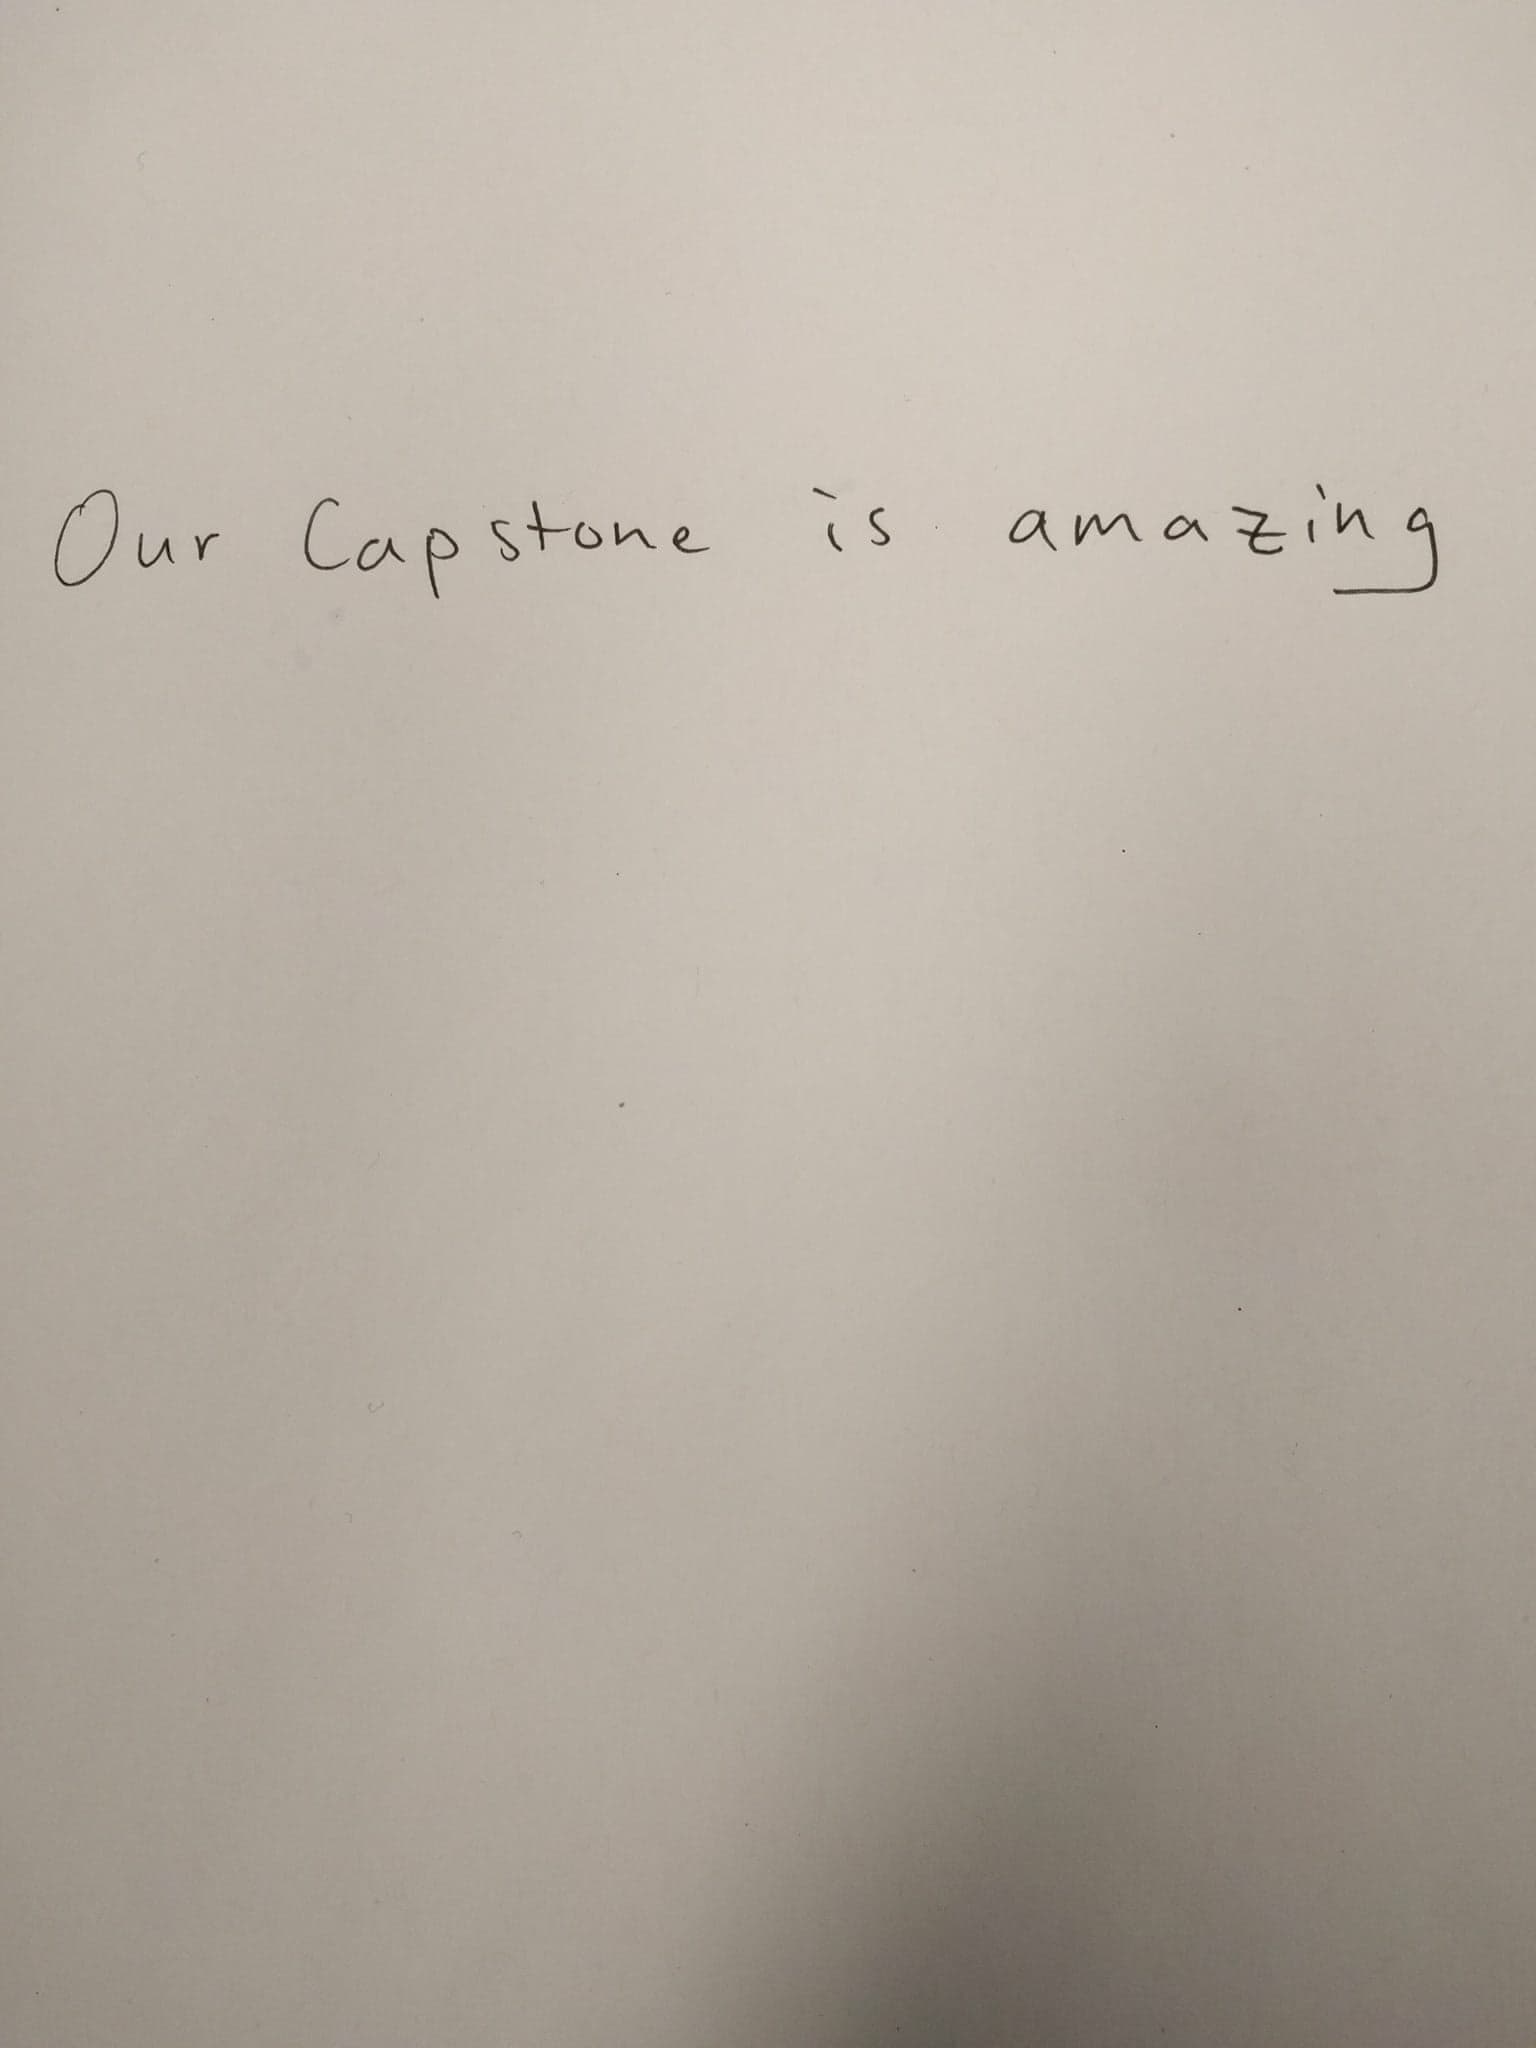 Our Capstone is amazing